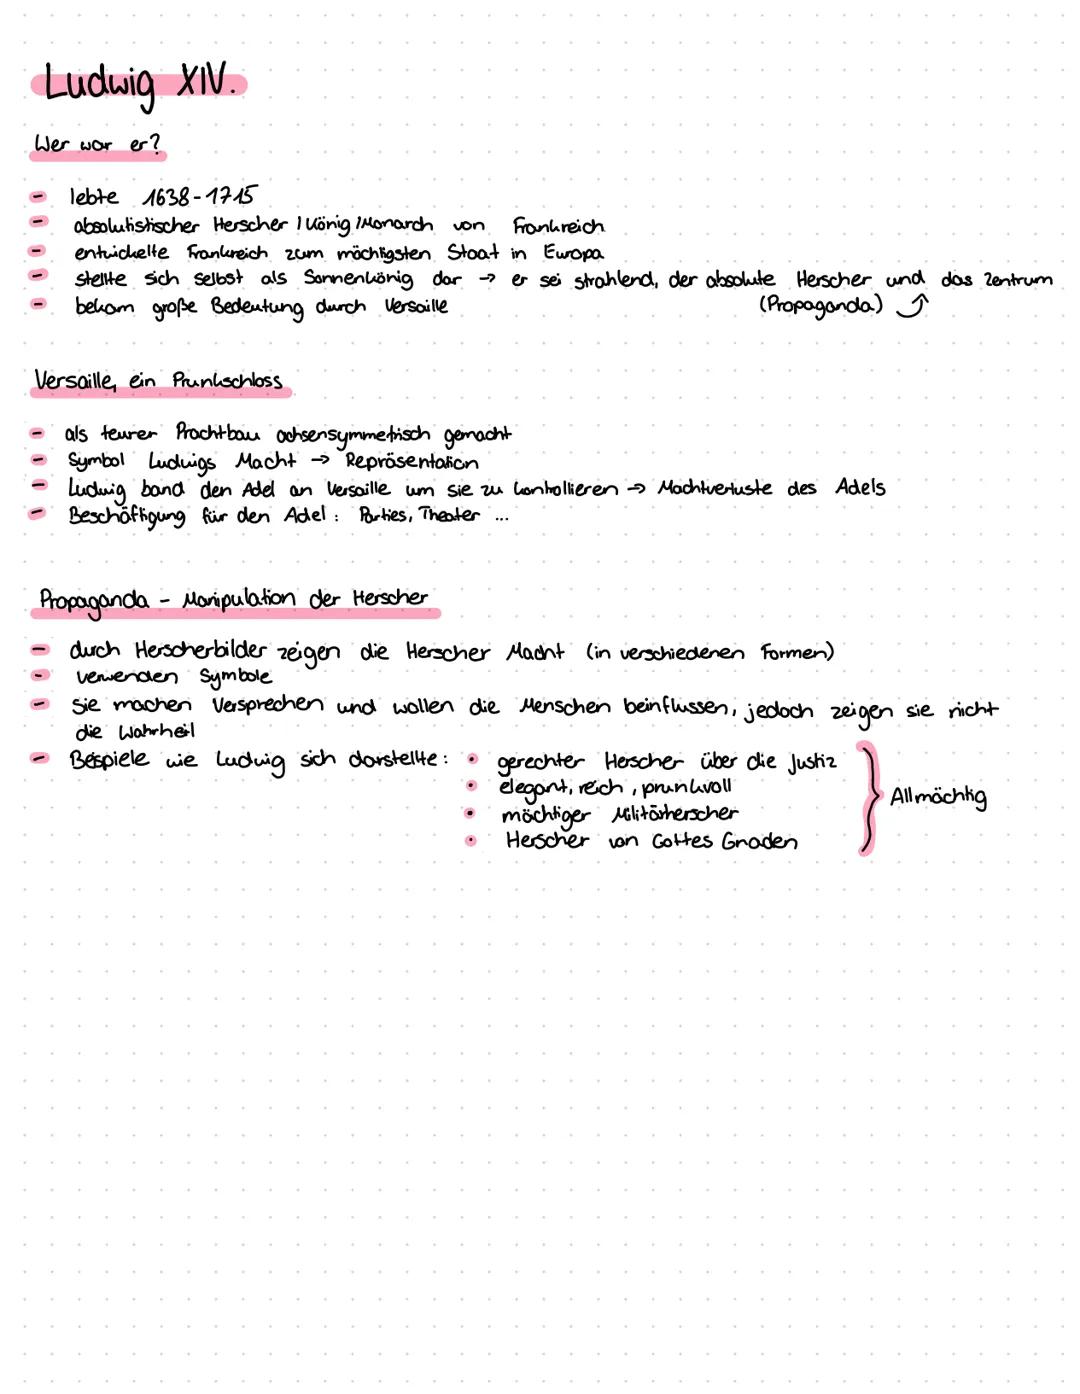 Ludwig XIV.
Wer war er?
- lebte 1638-1715
- absolutistischer Herscher / König / Monarch von Frankreich
- entwickelte Frankreich zum mächtigsten Staat in Europa
- stellte sich selbst als Sonnenkönig dar → er sei strahlend, der absolute Herscher und das Zentrum
- bekam große Bedeutung durch Versaille (Propaganda) ⤴
Versaille, ein Prunkschloss
- als teurer Prachtbau achsensymmetrisch gemacht
- Symbol Ludwigs Macht → Repräsentation
- Ludwig band den Adel an Versaille um sie zu kontrollieren → Machtverluste des Adels
- Beschäftigung für den Adel: Parties, Theater ...
Propaganda - Manipulation der Herscher
- durch Herscherbilder zeigen die Herscher Macht (in verschiedenen Formen)
- verwenden Symbole
- Sie machen Versprechen und wollen die Menschen beinflussen, jedoch zeigen sie nicht
die Wahrheit
- Beispiele wie Ludwig sich darstellte: • gerechter Herscher über die Justiz
• elegant, reich, prunkvoll
Allmächtig
• mächtiger Militärherscher
• Herscher von Gottes Gnaden